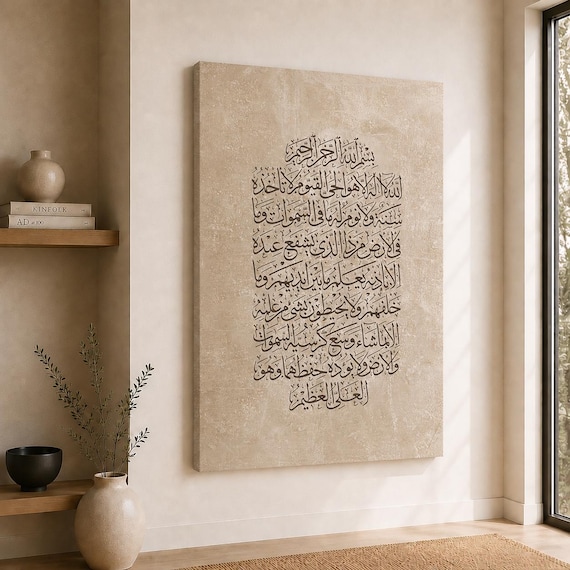 بسم الله الرحمن الرحيم
الله لا اله الا هو الحي القيوم لا تأخذه
سنة ولا نوم له ما في السموات وما
في الارض من ذا الذي يشفع عنده
الا باذنه يعلم ما بين ايديهم وما
خلفهم ولا يحيطون بشيء من علمه
الا بما شاء وسع كرسيه السموات
والارض ولا يوده حفظهما وهو
العلي العظيم
KINFOLK